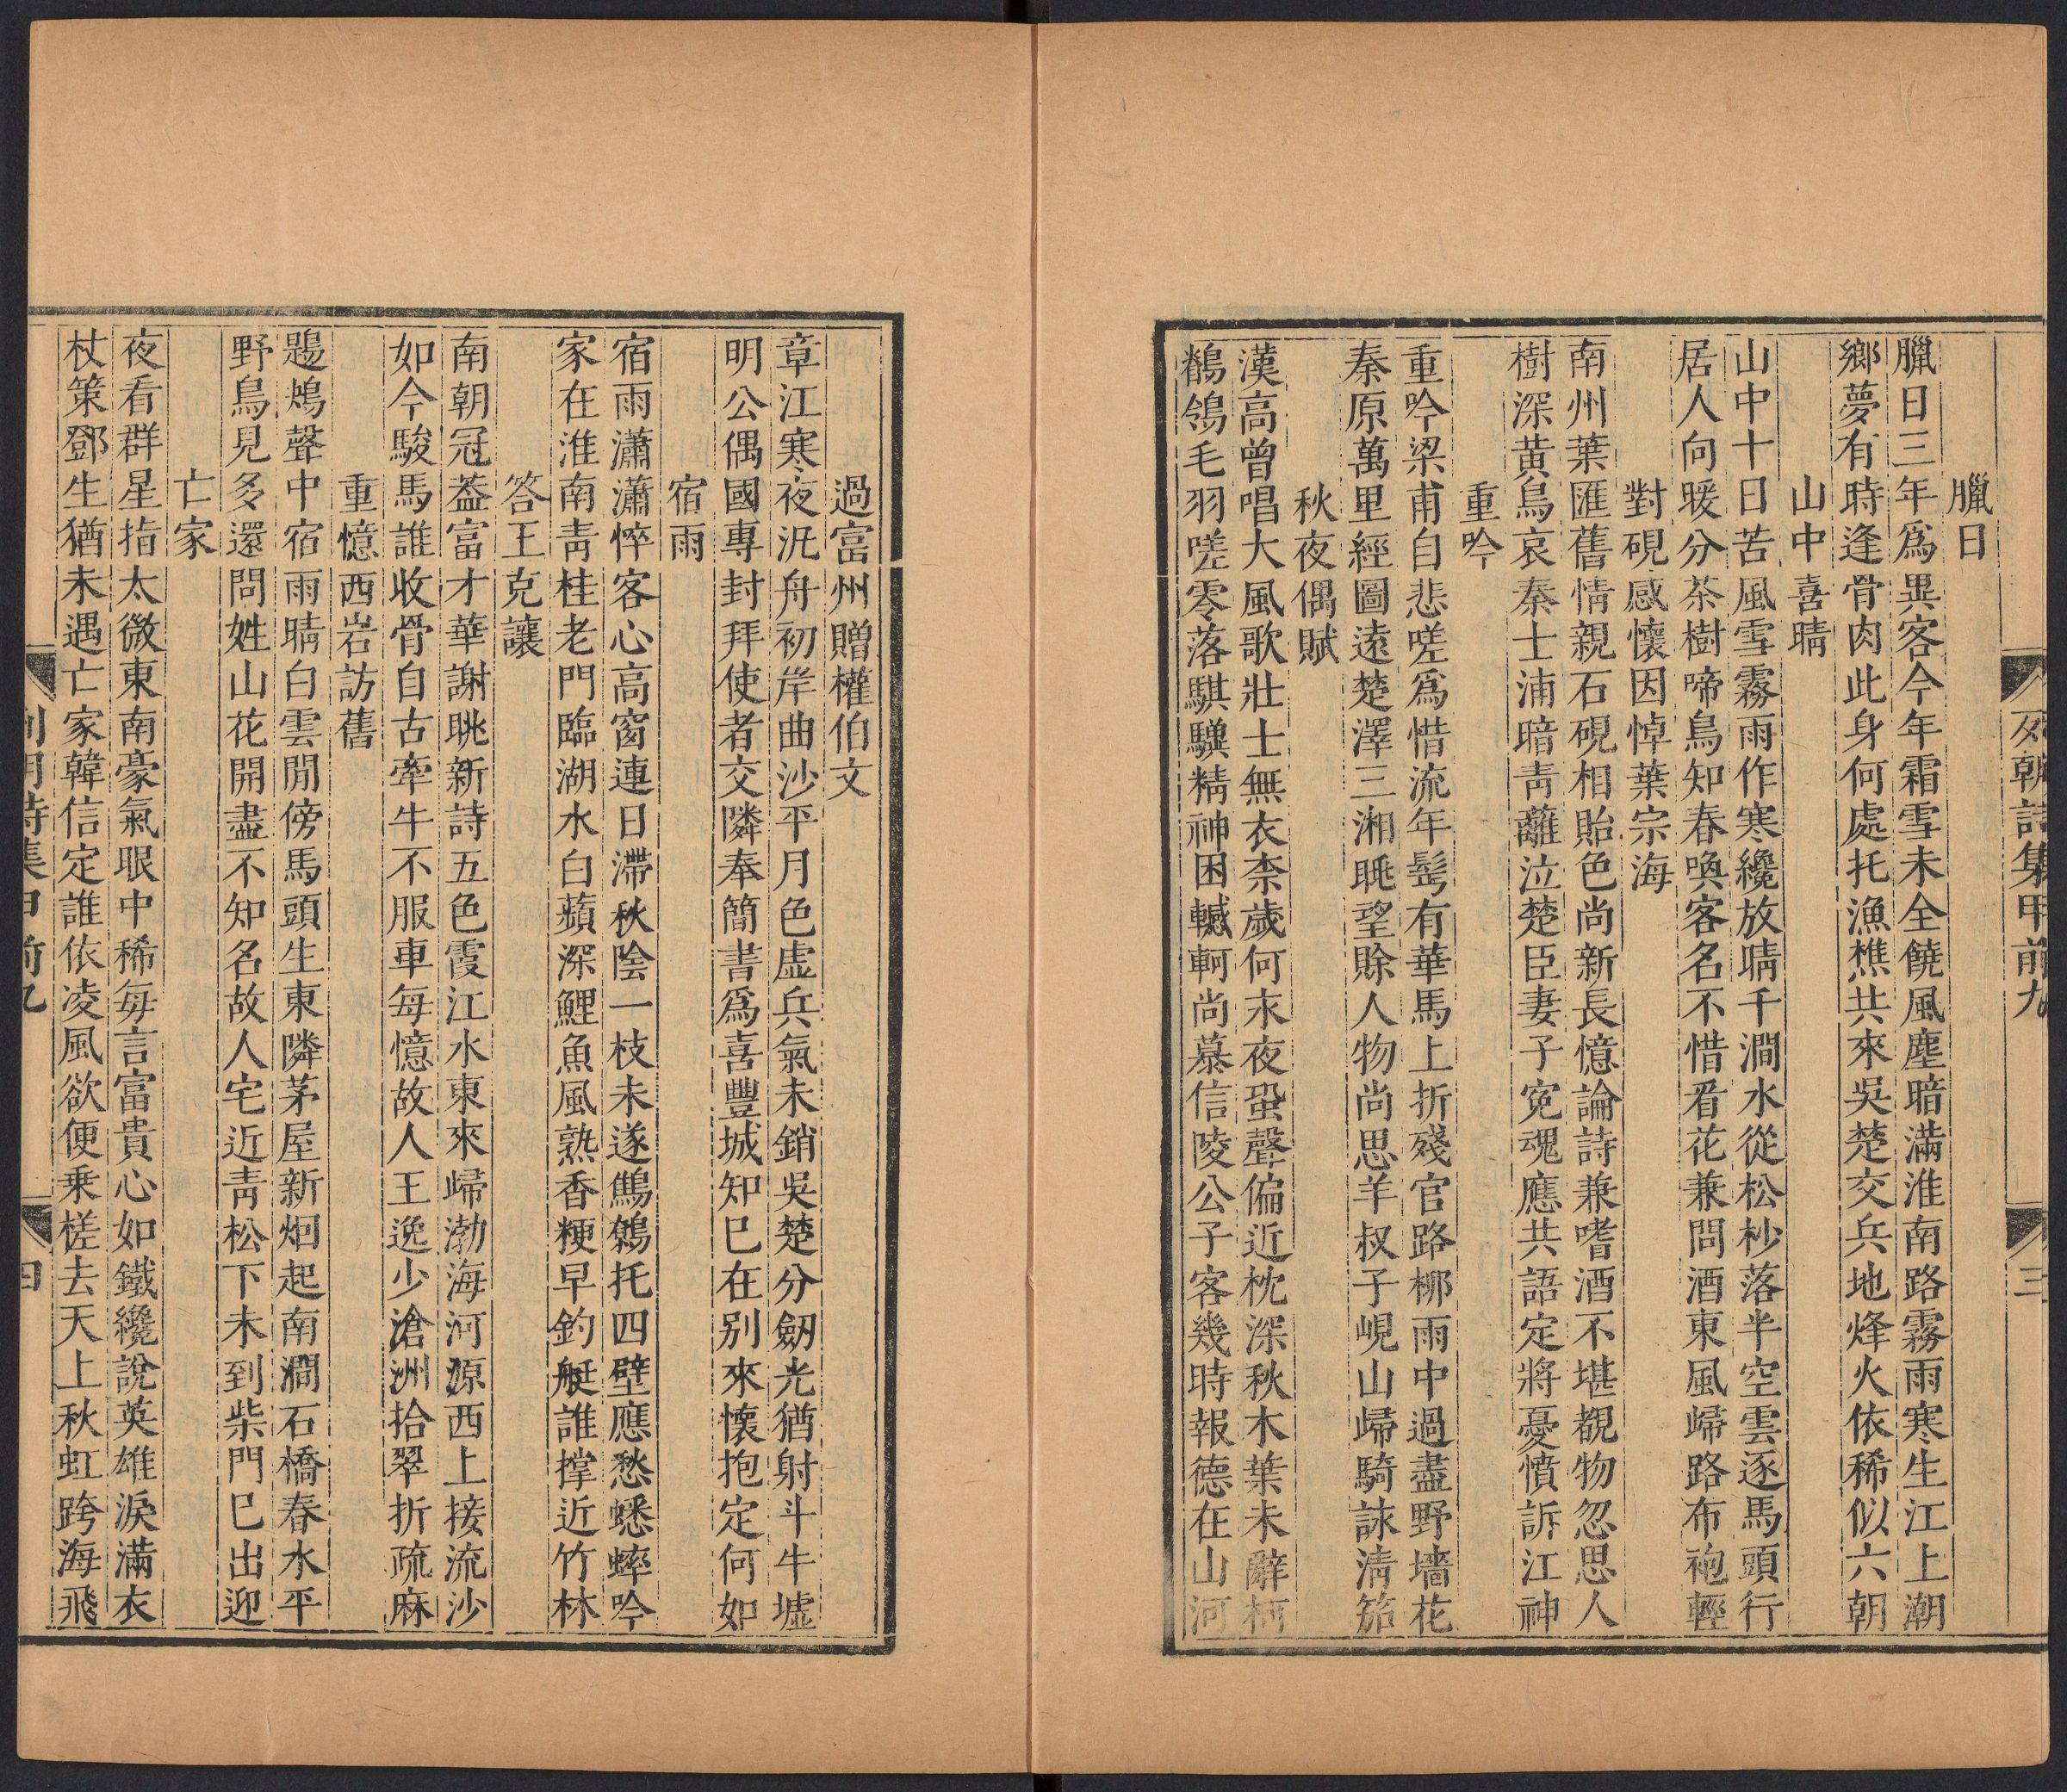 列朝詩集甲前九
三
臘日
臘日三年爲異客今年霜雪未全饒風塵暗滿淮南路霧雨寒生江上潮
鄉夢有時逢骨肉此身何處托漁樵共來吳楚交兵地烽火依稀似六朝
山中喜晴
山中十日苦風雪霧雨作寒纔放晴千澗水從松杪落半空雲逐馬頭行
居人向暖分茶樹啼鳥知春喚客名不惜看花兼問酒東風歸路布袍輕
對硯感懷因悼葉宗海
南州葉匯舊情親石硯相貽色尚新長憶論詩兼嗜酒不堪覩物忽思人
樹深黄鳥哀秦士浦暗靑蘺泣楚臣妻子寃魂應共語定將憂憤訴江神
重吟
重吟梁甫自悲嗟爲惜流年髩有華馬上折殘官路柳雨中過盡野墻花
秦原萬里經圖遠楚澤三湘眺望賖人物尚思羊叔子峴山歸騎詠淸笳
秋夜偶賦
漢高曾唱大風歌壯士無衣柰歲何永夜蛩聲偏近枕深秋木葉未辭柯
鶺鴒毛羽嗟零落騏驥精神困轗軻尚慕信陵公子客幾時報德在山河
過富州贈權伯文
章江寒夜泛舟初岸曲沙平月色虛兵氣未銷吳楚分劒光猶射斗牛墟
明公偶國專封拜使者交隣奉簡書爲喜豐城知已在别來懷抱定何如
宿雨
宿雨瀟瀟悴客心高窗連日滯秋陰一枝未遂鷦鷯托四壁應愁蟋蟀吟
家在淮南靑桂老門臨湖水白蘋深鯉魚風熟香粳早釣艇誰撐近竹林
答王克讓
南朝冠葢富才華謝眺新詩五色霞江水東來歸渤海河源西上接流沙
如今駿馬誰收骨自古牽牛不服車每憶故人王逸少滄洲拾翠折疏麻
重憶西岩訪舊
鶗鴂聲中宿雨晴白雲閒傍馬頭生東隣茅屋新烟起南澗石橋春水平
野鳥見多還問姓山花開盡不知名故人宅近靑松下未到柴門已出迎
亡家
夜看群星指太微東南豪氣眼中稀每言富貴心如鐵纔說英雄淚滿衣
杖策鄧生猶未遇亡家韓信定誰依凌風欲便乗槎去天上秋虹跨海飛
列朝詩集甲前九
四